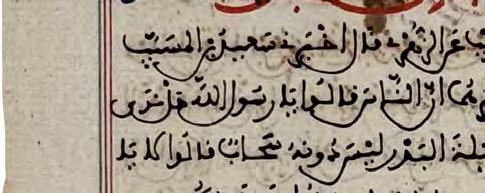 عن الزهري قال اخبرني سعيد بن المسيب
هما ان الناس قالوا يا رسول الله هل نرى
ليلة البدر ليس دونه سحاب قالوا لا يا